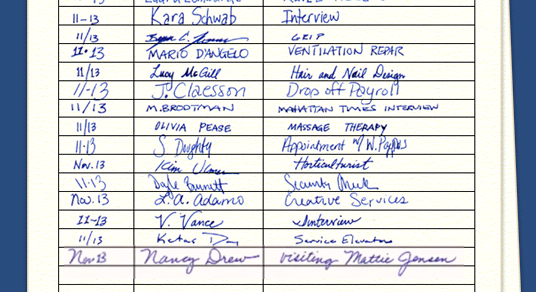 11-13 Kara Schwab Interview
11/13 GRIP
11-13 MARIO D'ANGELO VENTILATION REPAR
11/13 Lucy McGill Hair and Nail Design
11-13 J. Claesson Drop off Payroll
11/13 M. BROOTMAN MAHATTAN TIMES INTERVIEW
11/13 OLIVIA PEASE MASSAGE THERAPY
11-13 S Doughty Appointment m/ W. Pappas
Nov. 13 Kim Horticulturist
11-13 Dayle Security Check
Nov. 13 L.A. Adamo Creative Services
11-13 V. Vance Interview
11/13 Service Elevators
Nov 13 Nancy Drew visiting Mattie Jensen